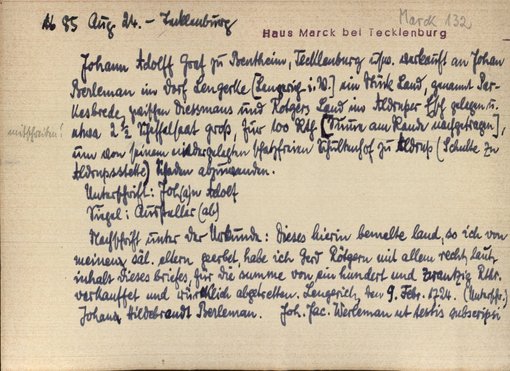 1685 Aug 24. - Tecklenburg
Marck 132
Haus Marck bei Tecklenburg
Johann Adolff Graf zu Bentheim, Tecklenburg usw. verkauft an Johan
Berleman im Dorf Lengerke [Lengerich i. W.] ein Stück Land, genannt
zwischen Dietzmans und Rötgers Land im Aldruper Esch gelegen u.
etwa 2 ½ Scheffelsaat groß, für 100 Rtlr [Summe am Rande nachgetragen],
um von seinem niedergelegten schatzfreien Schultenhof zu Aldrup (Schulte zu
Aldrupsstette) Schaden abzuwenden.
Unterschrift: Joh(a)n Adolf
Siegel: Aussteller (ab)
Nachschrift unter der Urkunde: Dieses hierin bemelte land, so ich von
meinen säl. eltern geerbet habe ich Gerd Rötgern mit allem recht, laut
inhalt dieses briefes, für die summe von ein hundert und zwantzig Rtlr.
verkauffet und würcklich abgetretten. Lengerich, den 9. Febr. 1724. (Unterschr.)
Johann Hildebrandt Berleman. Joh. Jac. Werleman ut testis subscripsi